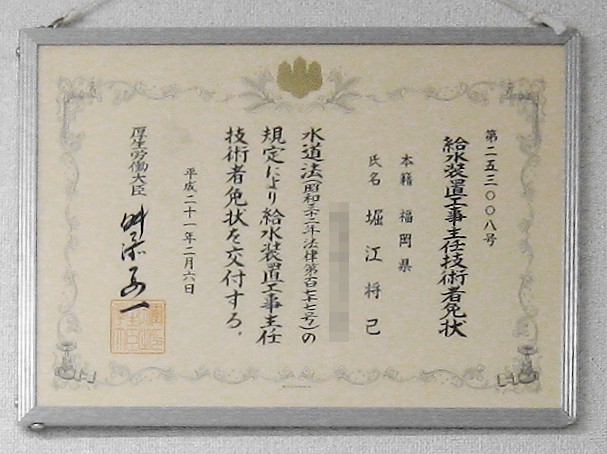 第二五二〇〇八号
給水装置工事主任技術者免状
本籍 福岡県
氏名 堀江将己
水道法(昭和三十二年法律第百七十七号)の
規定により給水装置工事主任
技術者免状を交付する。
平成二十一年二月六日
厚生労働大臣 舛添要一